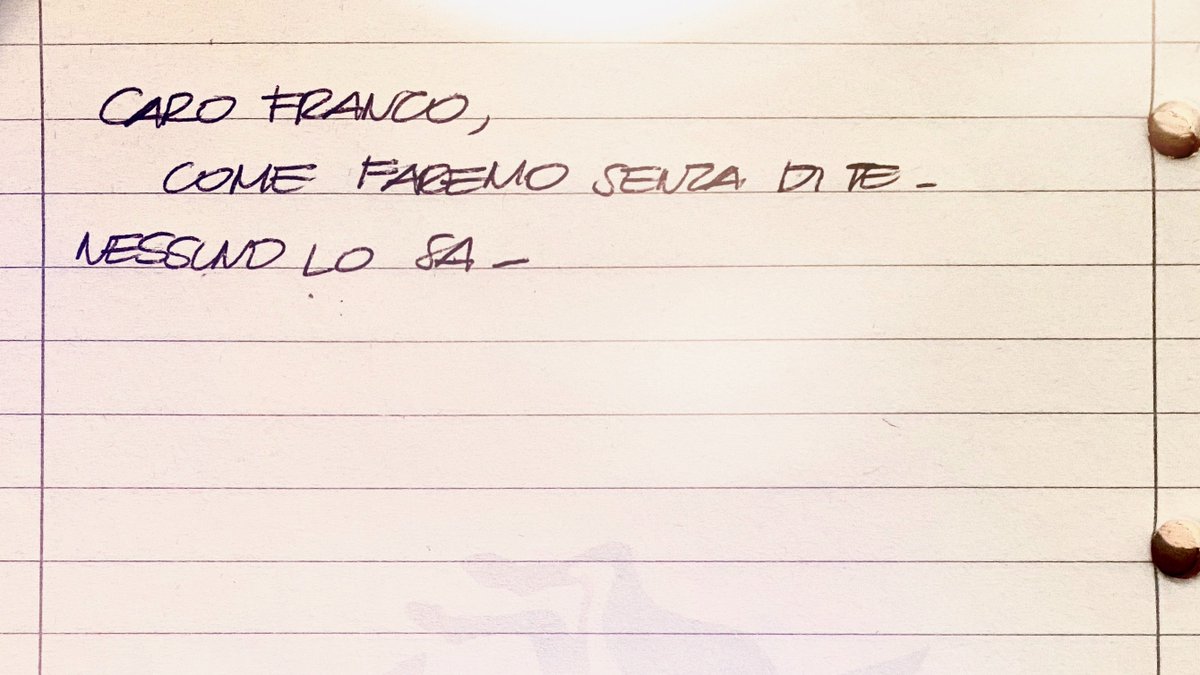 CARO FRANCO,
COME FAREMO SENZA DI TE_
NESSUNO LO SA_